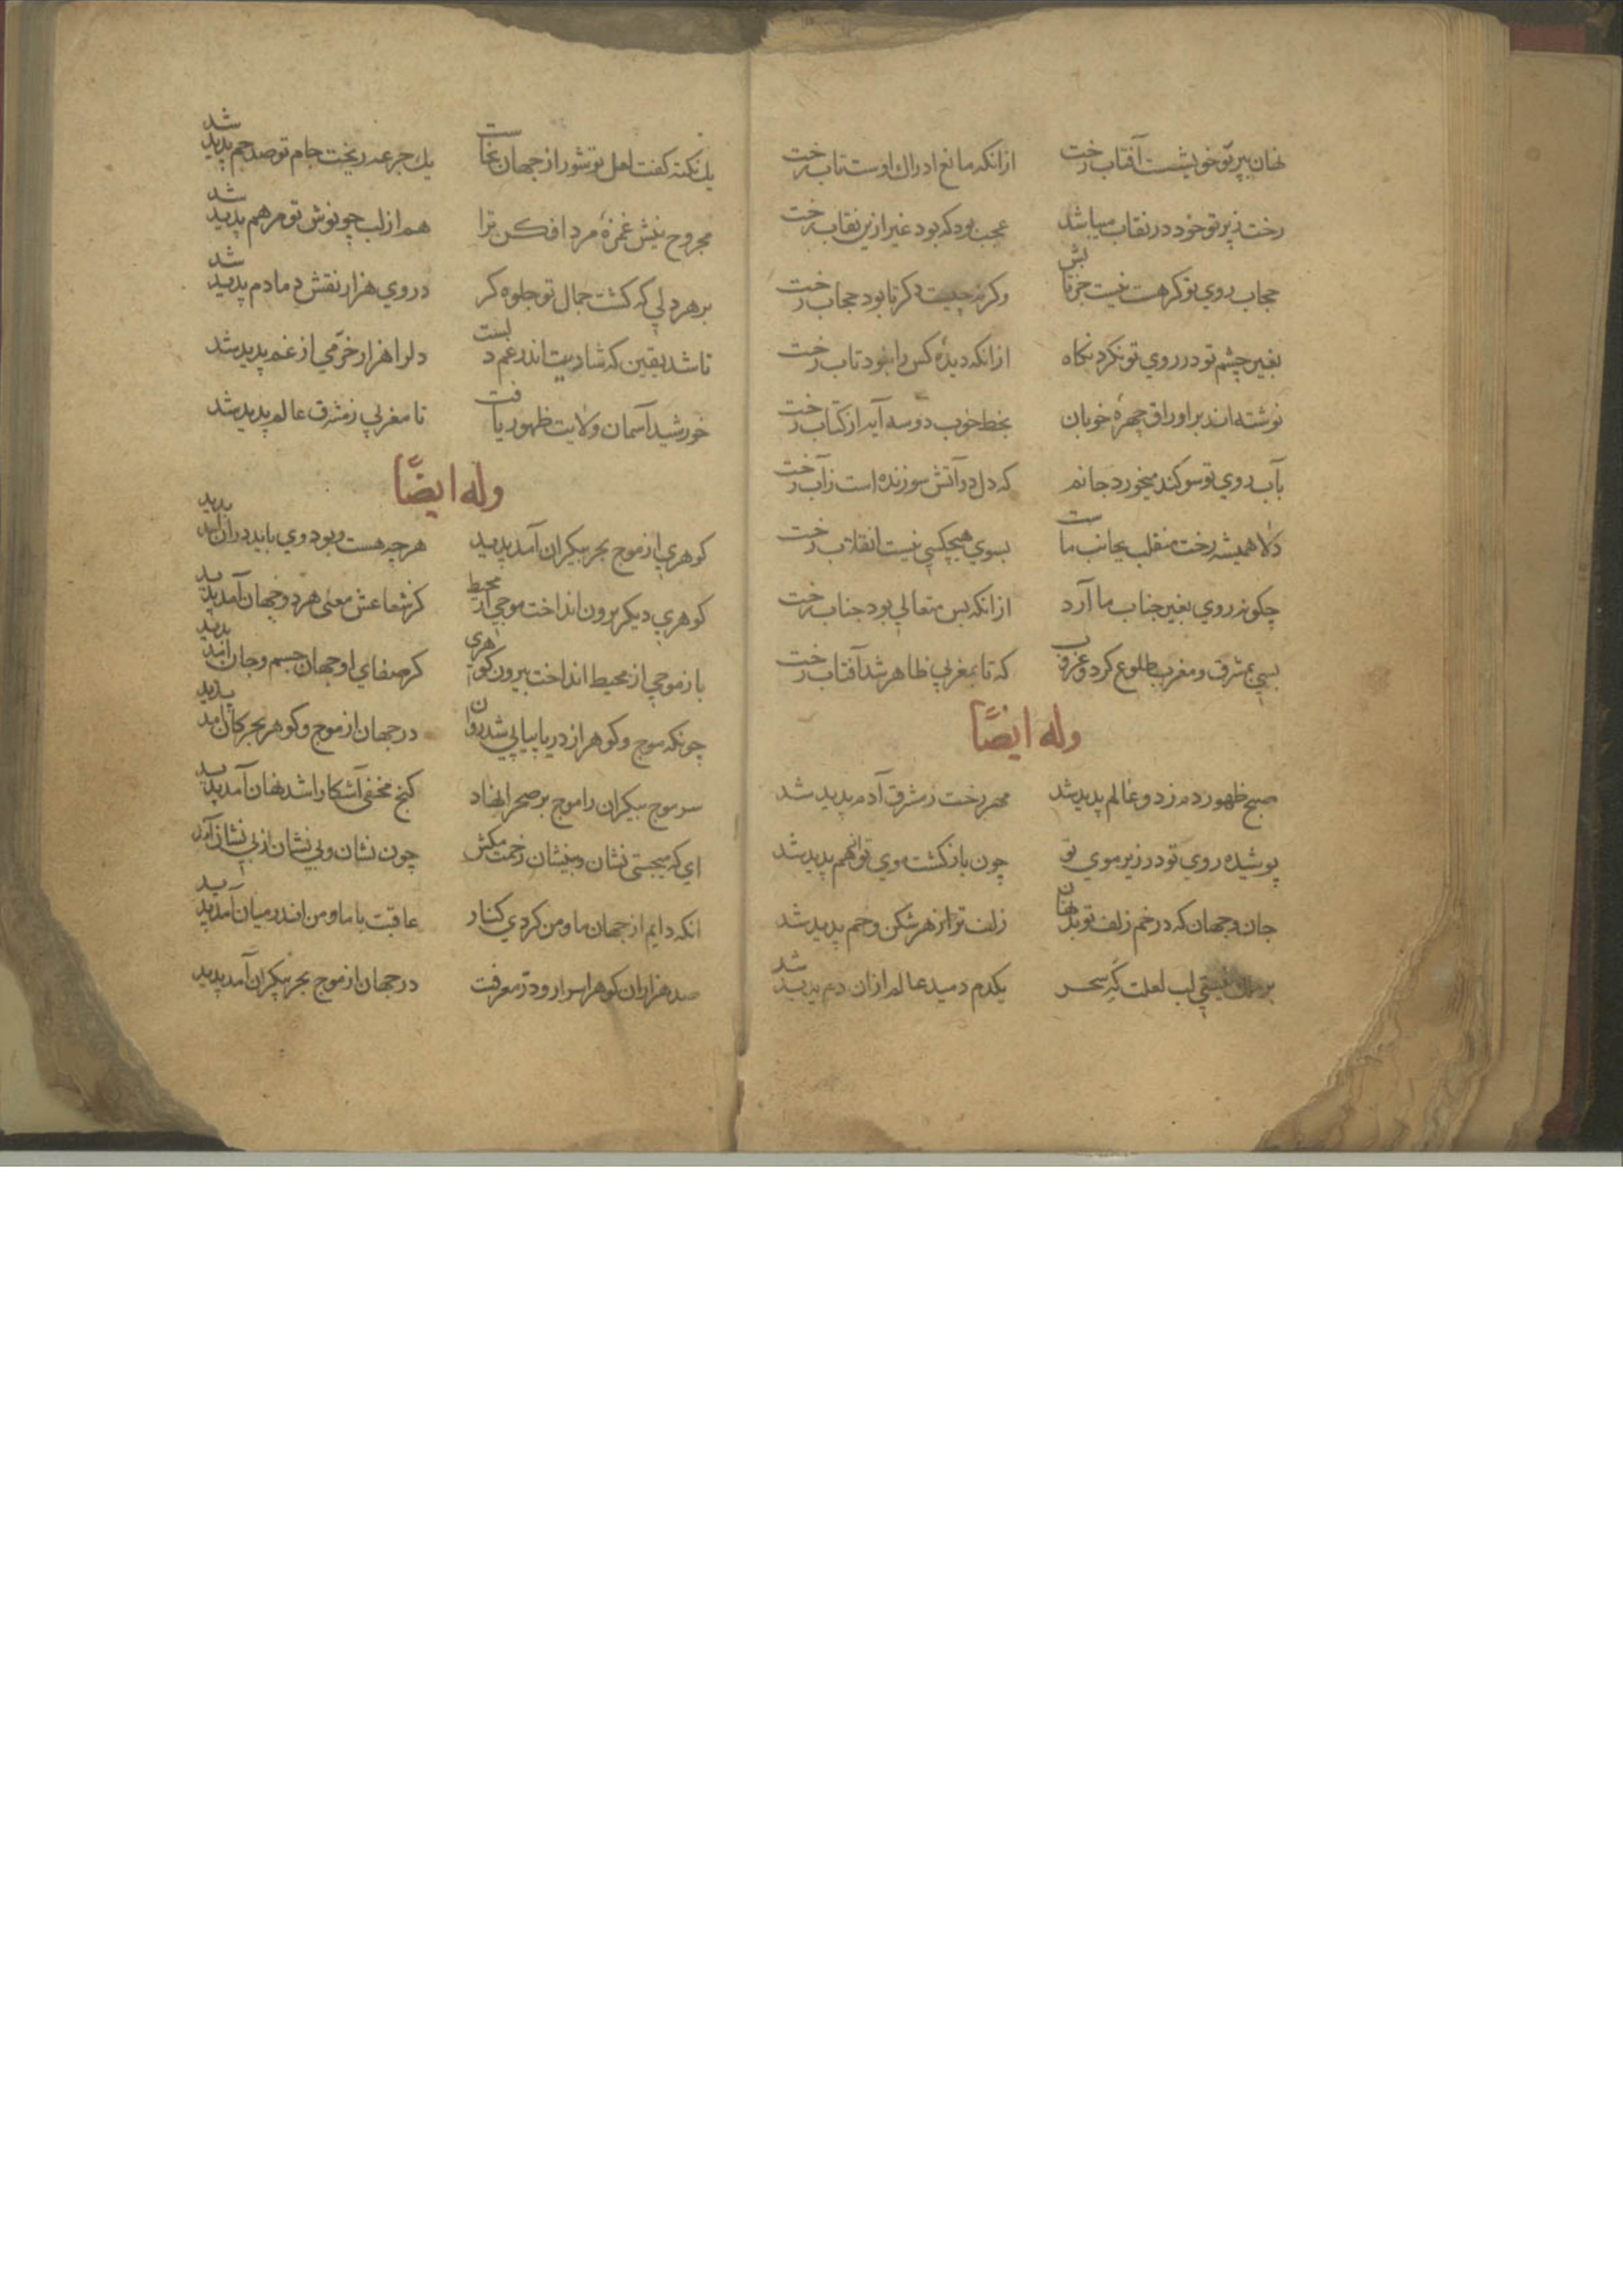 نهان بپرتو خویشست آفتاب رخت ازانکه مانع ادراك اوست تاب رخت
رخت ز پرتو خود در نقاب میباشد عجب بود که بود غیر ازین نقاب رخت
حجاب روي تو کر هست نیست جز تابش وکرنه چیست دکر تا بود حجاب رخت
بغیر چشم تو در روي تو نکرد نکاه ازانکه دیدهٔ کس را نبود تاب رخت
نوشته اند بر اوراق چهرهٔ خوبان بخط خوب دو سه آیه از کتاب رخت
بآب روي تو سوکند میخورد جانم که دل در آتش سوزنده است زآب رخت
دلا همیشه رخت منقلب بجانب ماست بسوي هیچکسي نیست انقلاب رخت
چکونه روي بغیر جناب ما آرد ازانکه بس متعالي بود جناب رخت
بسي بمشرق ومغرب طلوع کرد وغروب که تا بمغربي ظاهر شد آفتاب رخت
وله ایضًا
صبح ظهور دم زد و عالم پدید شد مهر رخت ز مشرق آدم پدید شد
پوشیده روي تو در زیر موي تو چون باز کشت موي تو انهم پدید شد
جان وجهان که در خم زلف تو بد نهان زلف ترا ز هر شکن و خم پدید شد
بر لب لعلت که سحر یکدم دمید عالم ازان دم پدید شد
یك نکته کفت لعل تو شور از جهان بخاست یك جرعه ریخت جام تو صد جم پدید شد
مجروح نیش غمزهٔ مرد افکن ترا هم از لب چو نوش تو مرهم پدید شد
بر هر دلي که کشت جمال تو جلوه کر در وي هزار نقش دمادم پدید شد
تا شد یقین که شادیت اندر غم دلست دلرا هزار خرّمي از غم پدید شد
خورشید آسمان ولایت ظهور یافت تا مغربي ز مشرق عالم پدید شد
وله ایضًا
کوهري از موج بحر بیکران آمد پدید هرچه هست وبود وي باید دران آمد پدید
کوهري دیکر برون انداخت موجي از محیط کز شعاعش معنی هر دو جهان آمد پدید
باز موجي از محیط انداخت بیرون کوهری کز صفاي او جهان جسم وجان آمد پدید
چونکه موج وکوهر از دریا پیاپي شد روان در جهان از موج وکوهر بحر کان آمد پدید
سر موج بیکران را موج بر صحرا نهاد کنج مخفی آشکارا شد نهان آمد پدید
اي که میجستي نشان بینشان زحمت مکش چون نشان وبي نشان از بي نشان آمد
انکه دایم از جهان ما ومن کردي کنار عاقبت با ما ومن اندر میان آمد پدید
صد هزاران کوهر اسرار ودر معرفت در جهان از موج بحر بیکران آمد پدید